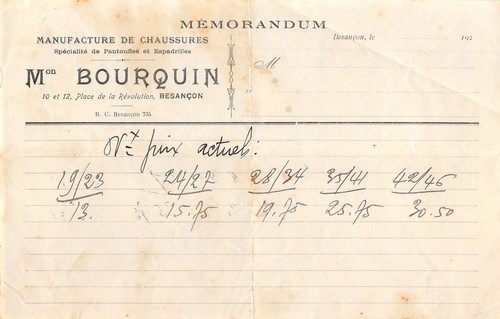 MÉMORANDUM
MANUFACTURE DE CHAUSSURES
Spécialité de Pantoufles et Espadrilles
Mon BOURQUIN
10 et 12, Place de la Révolution, BESANÇON
R. C. Besançon 735
Besançon, le 192
M
Nx prix actuels:
19/23 24/27 28/34 35/41 42/46
13. 15.75 19.75 25.75 30.50